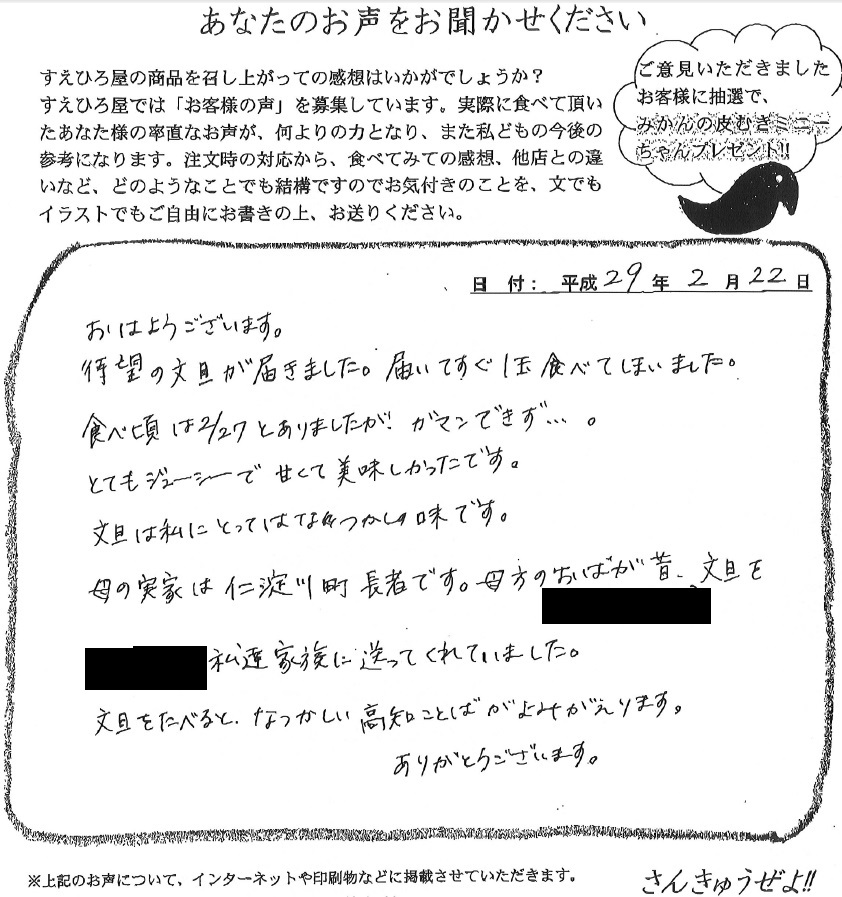 あなたのお声をお聞かせください
すえひろ屋の商品を召し上がっての感想はいかがでしょうか?
すえひろ屋では「お客様の声」を募集しています。実際に食べて頂い
たあなた様の率直なお声が、何よりの力となり、また私どもの今後の
参考になります。注文時の対応から、食べてみての感想、他店との違
いなど、どのようなことでも結構ですのでお気付きのことを、文でも
イラストでもご自由にお書きの上、お送りください。
ご意見いただきました
お客様に抽選で、
みかんの皮むきミニー
ちゃんプレゼント!!
日 付: 平成 29 年 2 月 22 日
おはようございます。
待望の文旦が届きました。届いてすぐ1玉食べてしまいました。
食べ頃は2/27とありましたが! ガマンできず…。
とてもジューシーで甘くて美味しかったです。
文旦は私にとってはなつかしい味です。
母の実家は仁淀川町長者です。母方のおばが昔、文旦を
私達家族に送ってくれていました。
文旦をたべると、なつかしい高知ことばがよみがえります。
ありがとうございます。
※上記のお声について、インターネットや印刷物などに掲載させていただきます。
さんきゅうぜよ!!